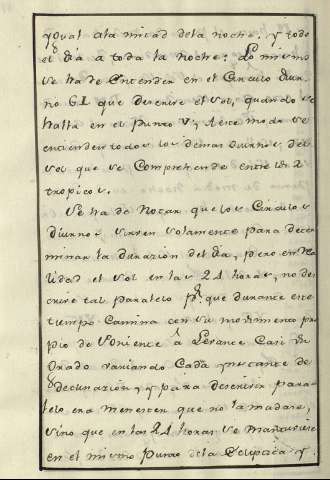 ygual ala mitad dela noche: y todo
el dia a toda la noche: Lo mismo
se ha de Entender en el Circulo Diur
no GL que descrive el sol, quando se
halla en el Punto V; y deste modo se
entienden todos los demas diurnos del
sol que se Comprehende entre los 2
tropicos.
Se ha de Notar que los Circulos
diurnos sirven solamente para deter
minar la durazion del dia, pero en Rea
lidad el sol en las 24 horas, no des
crive tal paralelo pr. que durante este
tiempo Camina con su movimiento pro
pio de Poniente â Levante Casi un
Grado variando Cada ynstante de
declinazion, y para descrivir para
lelo era menester que no la mudase,
sino que en las 24 horas se mantuviese
en el mismo Punto dela Ecliptica y